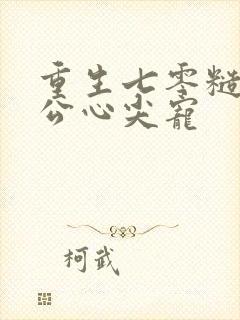 重生七零糙
公心尖宠
柯武